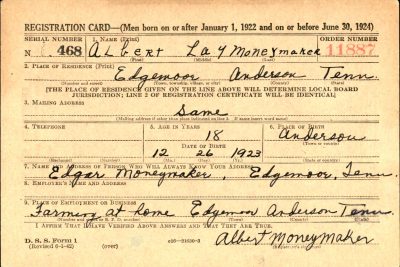 REGISTRATION CARD—(Men born on or after January 1, 1922 and on or before June 30, 1924)
SERIAL NUMBER 1. NAME (Print) ORDER NUMBER
N 468 ALBERT LAY Moneymaker 11887
(First) (Middle) (Last)
2. PLACE OF RESIDENCE (Print)
Edgemoor Anderson Tenn.
(Number and street) (Town, township, village, or city) (County) (State)
[THE PLACE OF RESIDENCE GIVEN ON THE LINE ABOVE WILL DETERMINE LOCAL BOARD
JURISDICTION; LINE 2 OF REGISTRATION CERTIFICATE WILL BE IDENTICAL]
3. MAILING ADDRESS
Same
[Mailing address if other than place indicated on line 2. If same insert word same]
4. TELEPHONE 5. AGE IN YEARS 6. PLACE OF BIRTH
18 Anderson
DATE OF BIRTH (Town or county)
12 26 1923
(Exchange) (Number) (Mo.) (Day) (Yr.) (State or country)
7. NAME AND ADDRESS OF PERSON WHO WILL ALWAYS KNOW YOUR ADDRESS
Edgar Moneymaker Edgemoor, Tenn.
8. EMPLOYER'S NAME AND ADDRESS
9. PLACE OF EMPLOYMENT OR BUSINESS
Farming at Home Edgemoor Anderson Tenn.
(Number and street or R. F. D. number) (Town) (County) (State)
I AFFIRM THAT I HAVE VERIFIED ABOVE ANSWERS AND THAT THEY ARE TRUE.
D. S. S. Form 1
(Revised 6-1-42) (over) 16—21630-3 Albert Moneymaker